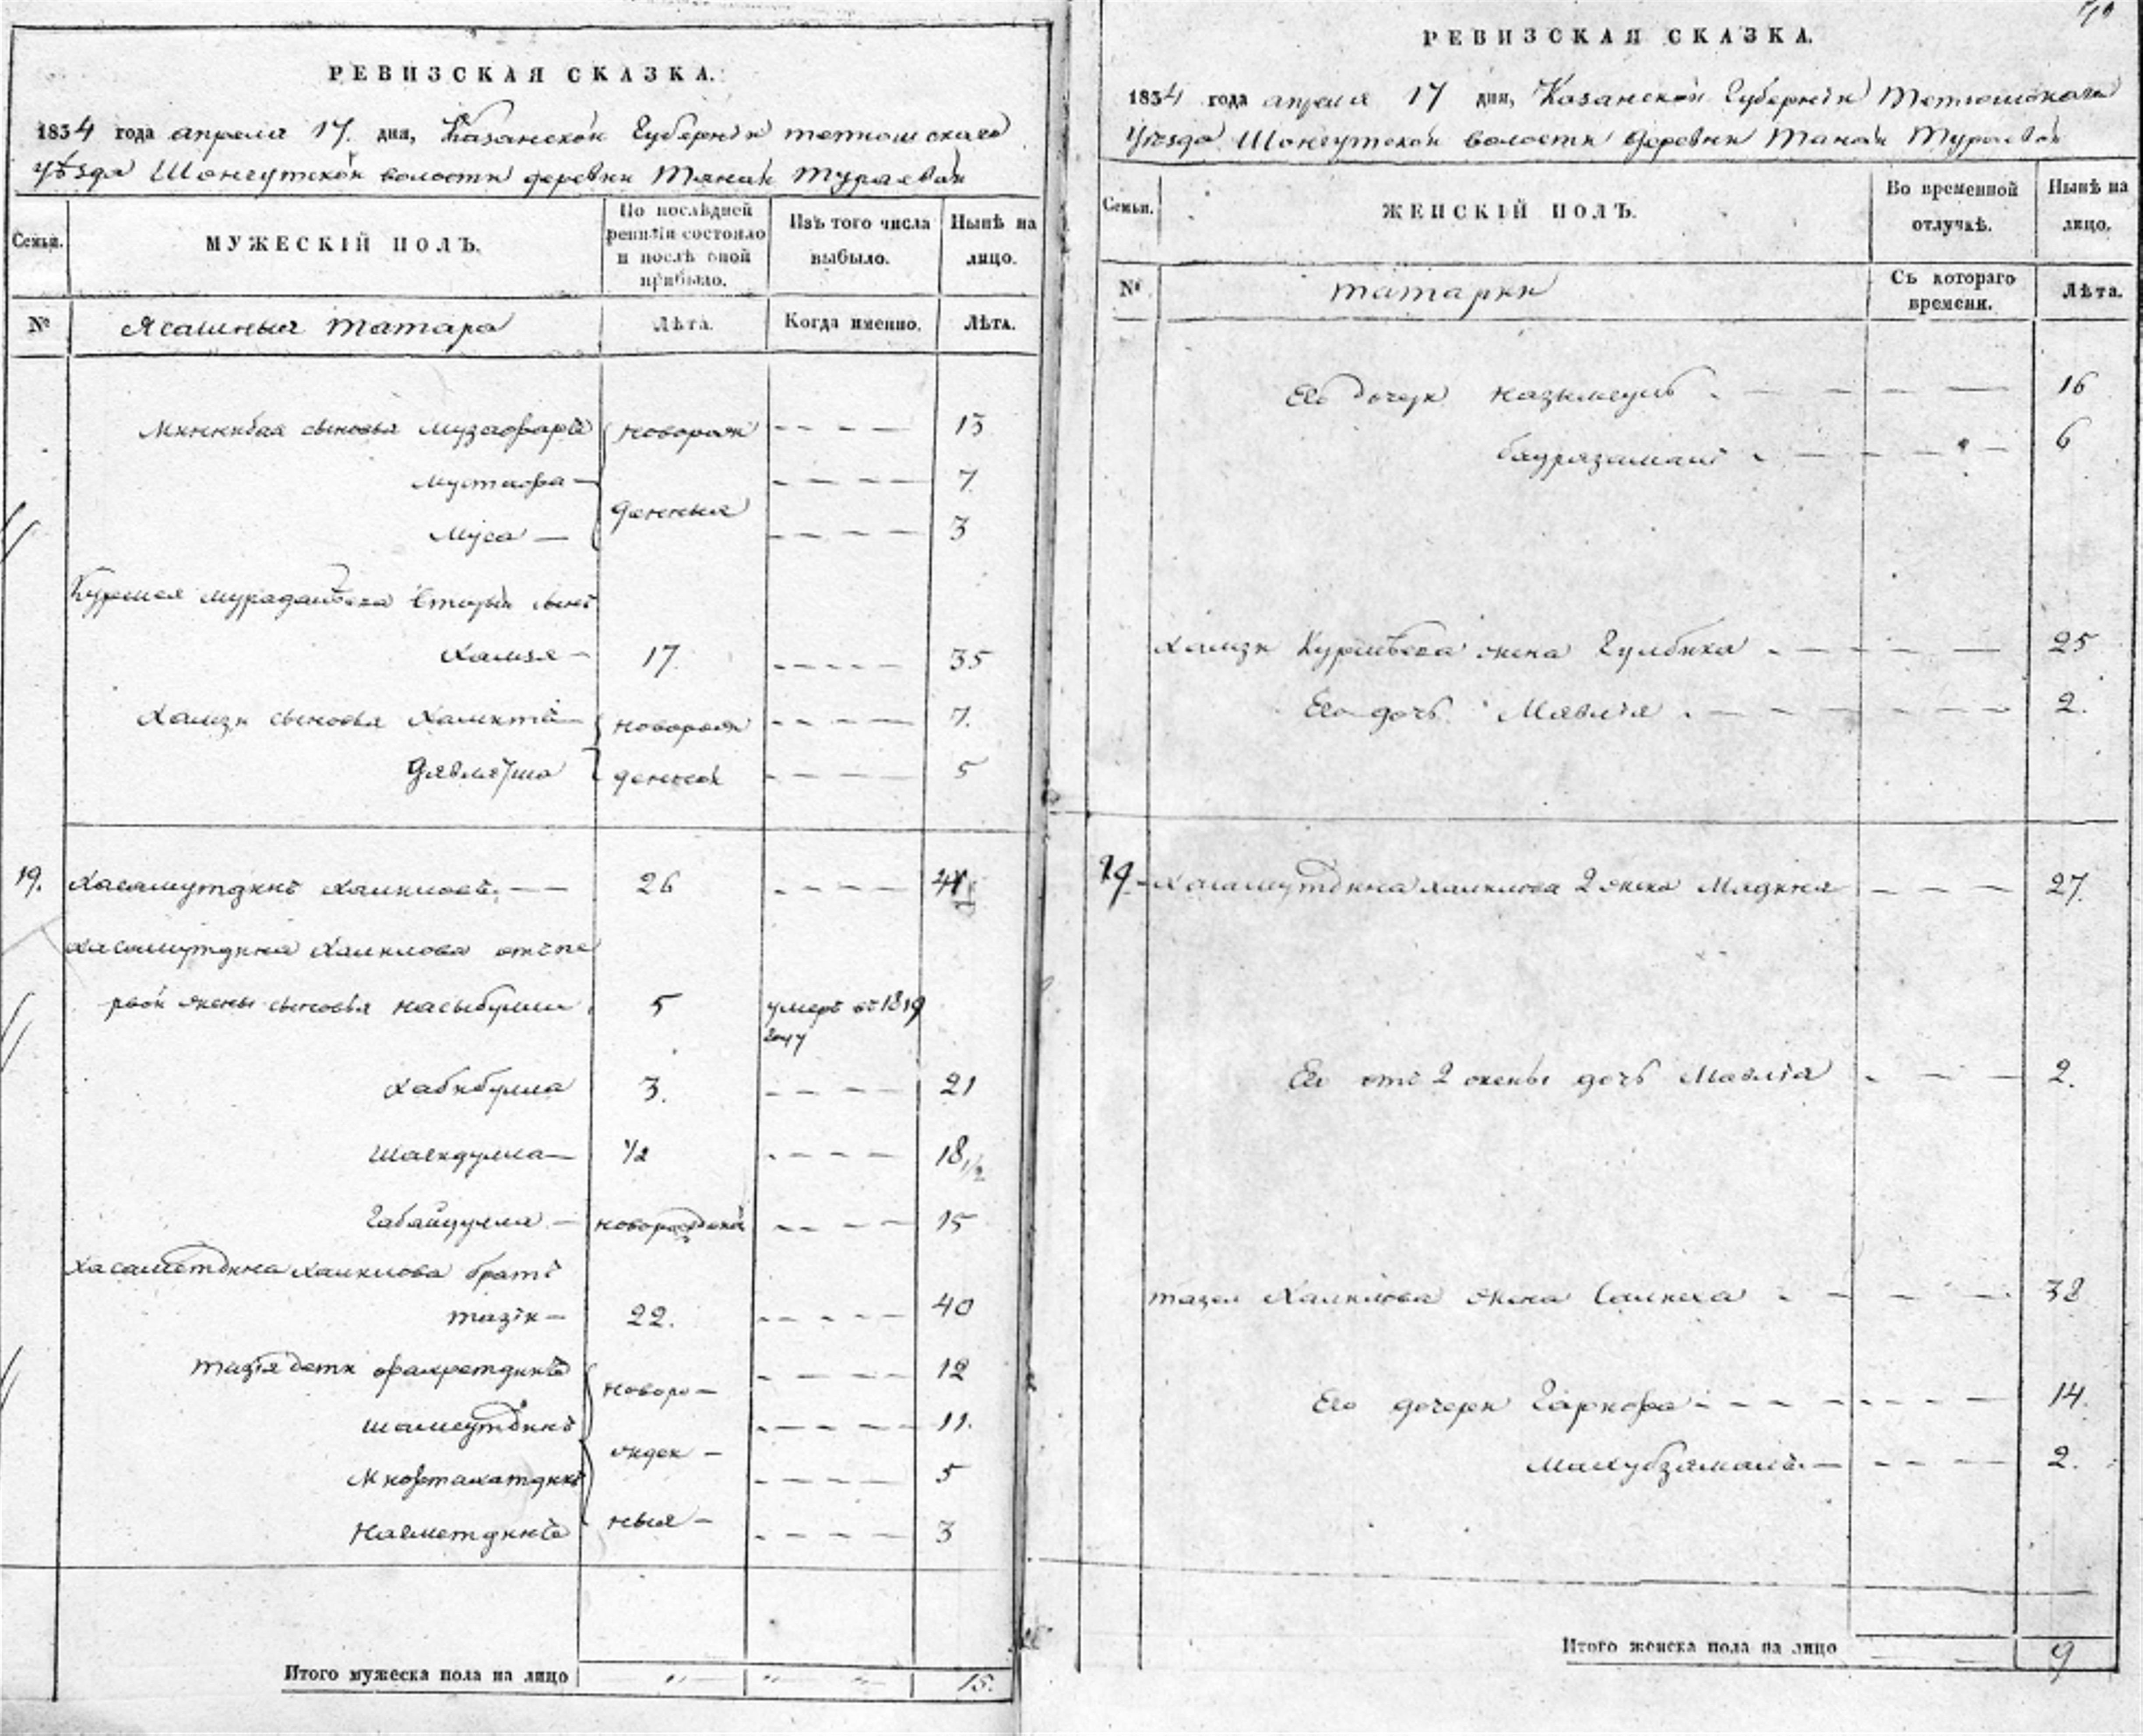 РЕВИЗСКАЯ СКАЗКА.
1834 года апреля 17. дня, Казанской Губернiи тетюшскаго
уѣзда Шонгутской волости деревни Тянай Тураевой
Семьи.
МУЖЕСКIЙ ПОЛЪ.
По послѣдней ревизiи состояло и послѣ оной прибыло.
Изъ того числа выбыло.
Нынѣ на лицо.
№
Ясашныя татара
Лѣта.
Когда именно.
Лѣта.
Миникбая сыновья Музафаръ новорож 13
Мустафа 7
денныя
Муса 3
сынъ
Хамзя 17. 35
Хамзи сыновья Хамитъ новорож 7.
Давлятша денныя 5
19. Хасамутдинъ Халиловъ. 26
Хасамутдина Халилова отъ пе
рвой жены сыновья Насыбулла 5 умеръ въ 1819
году
Хабибулла 3. 21
Шагидулла 1/2 18 1/2
Габайдулла новорожденой 15
Хасаметдина Халилова братъ
Тазiй 22. 40
Тазiя дети Фахретдинъ новоро 12
Шамсутдинъ 11.
жден
Мифтахатдинъ 5
Наяметдинъ ныя 3
Итого мужеска пола на лицо 15.
РЕВИЗСКАЯ СКАЗКА.
1834 года апреля 17 дня, Казанской Губернiи Тетюшскаго
Уѣзда Шонгутской волости деревни Танай Тураевой
Семьи.
ЖЕНСКIЙ ПОЛЪ.
Во временной отлучкѣ.
Нынѣ на лицо.
№
татарки
Съ котораго времени.
Лѣта.
Его дочери 16
6
Хамзи жена Гулбика 25
Его дочь Мявлiя 2.
19 Хасамутдина Халилова 2 жена Мядина 27.
Его отъ 2 жены дочь Мавлiя 2.
Халилова жена Салиха 38
Его дочери 14.
Махубзямалъ 2.
Итого женска пола на лицо 9